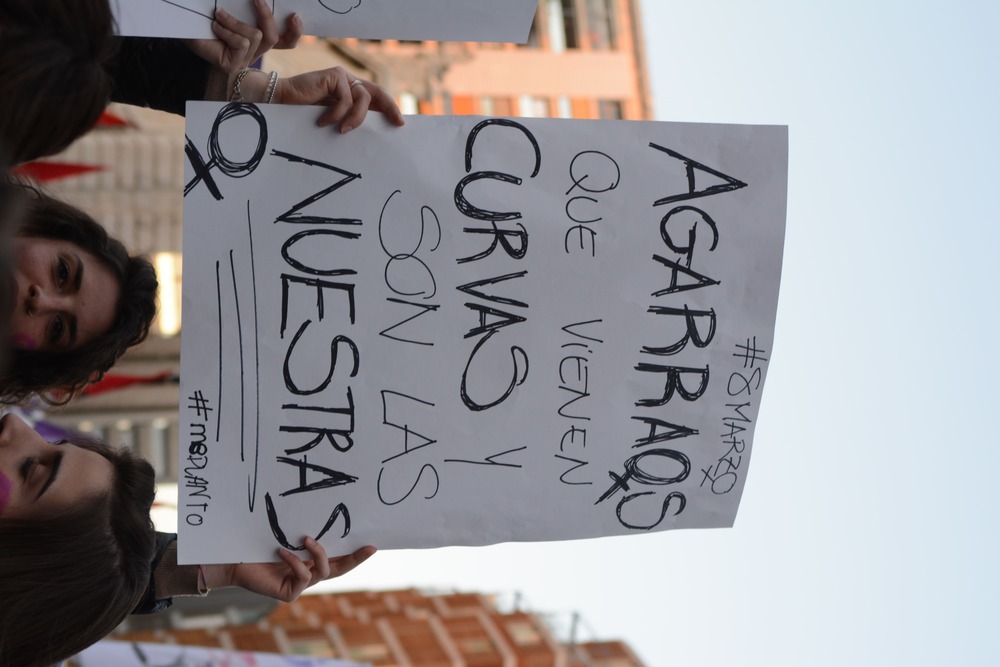 #8MARZO
AGARRAOS
QUE VIENEN
CURVAS Y
SON LAS
NUESTRAS
#moPLANTO